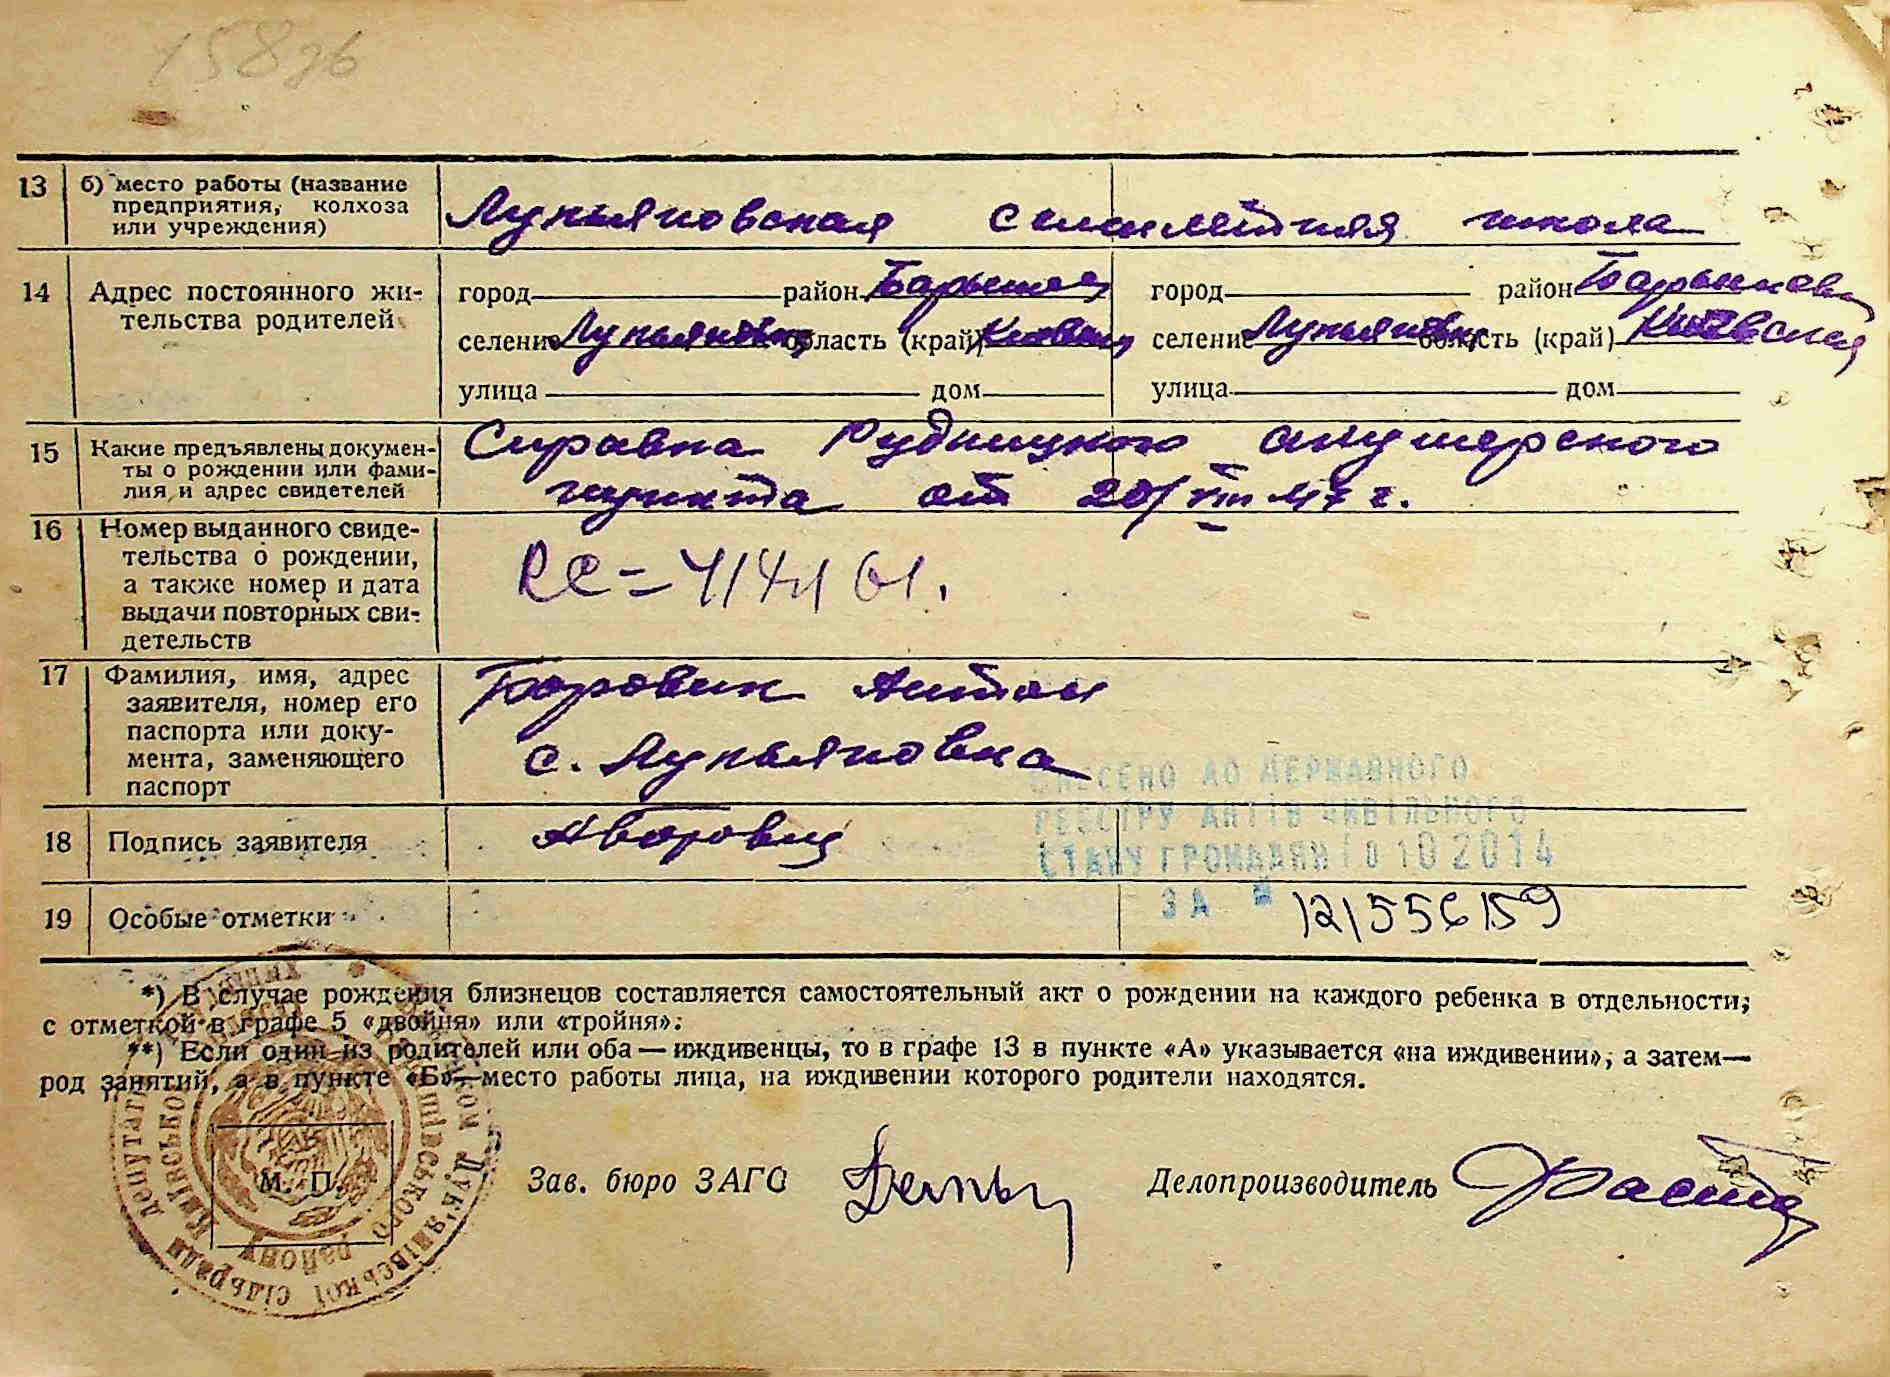 13 б) место работы (название
предприятия, колхоза
или учреждения)
Лукьяновская семилетняя школа
14 Адрес постоянного жи-
тельства родителей
город район Барышев город район Барышевск
селение Лукьяновка область (край) Киевск селение Лукьяновка область (край) Киевская
улица дом улица дом
15 Какие предъявлены докумен-
ты о рождении или фами-
лия и адрес свидетелей
Справка Рудницкого акушерского
пункта от 20/VIII 47 г.
16 Номер выданного свиде-
тельства о рождении,
а также номер и дата
выдачи повторных сви-
детельств
17 Фамилия, имя, адрес
заявителя, номер его
паспорта или доку-
мента, заменяющего
паспорт
Боровик Антон
с. Лукьяновка
ВНЕСЕНО ДО ДЕРЖАВНОГО
РЕЄСТРУ АКТІВ ЦИВІЛЬНОГО
СТАНУ ГРОМАДЯН 10 10 2014
ЗА №
18 Подпись заявителя
19 Особые отметки
*) В случае рождения близнецов составляется самостоятельный акт о рождении на каждого ребенка в отдельности,
с отметкой в графе 5 «двойня» или «тройня».
**) Если один из родителей или оба — иждивенцы, то в графе 13 в пункте «А» указывается «на иждивении», а затем—
род занятий, а в пункте «Б»—место работы лица, на иждивении которого родители находятся.
М. П.
Зав. бюро ЗАГС Делопроизводитель
Лук'янівської сільради
району Київської